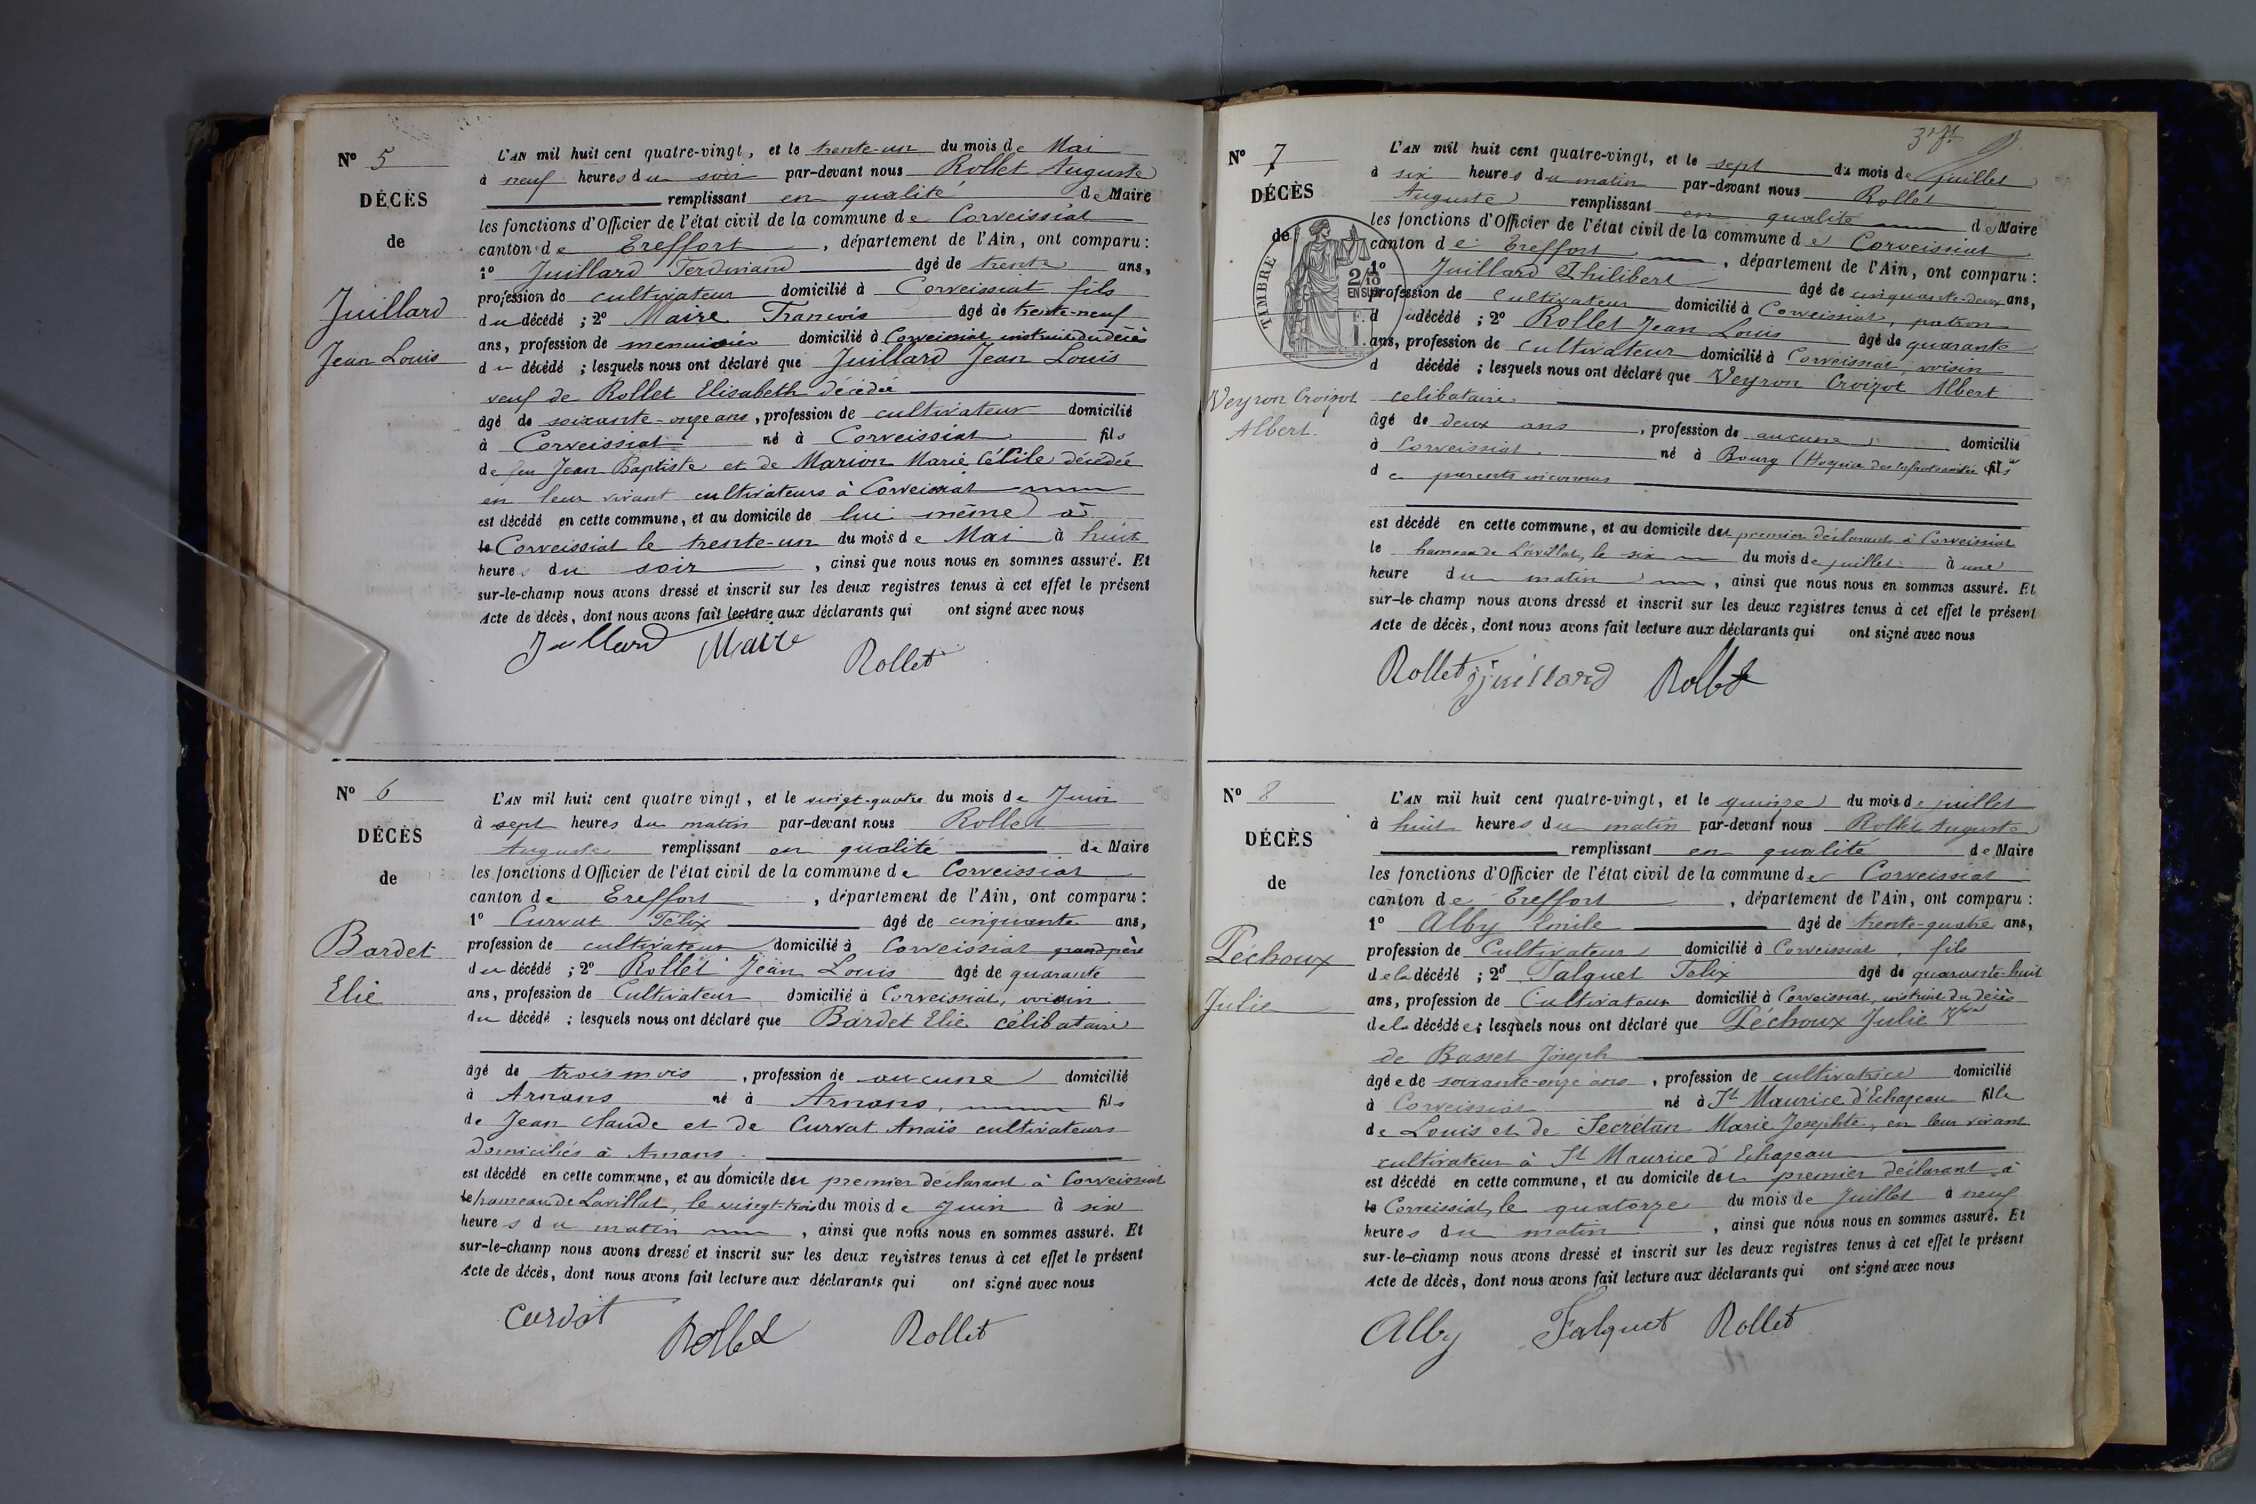 N° 5
DÉCÈS
de
Juillard
Jean Louis
L'AN mil huit cent quatre-vingt, et le trente-un du mois de Mai
à neuf heures du soir par-devant nous Rollet Auguste
remplissant en qualité de Maire
les fonctions d'Officier de l'état civil de la commune de Corveissiat
canton de Treffort, département de l'Ain, ont comparu:
1° Juillard Ferdinand âgé de trente ans,
profession de cultivateur domicilié à Corveissiat fils
du décédé ; 2° Maire Francois âgé de trente-neuf
ans, profession de menuisier domicilié à Corveissiat instruit du décès
du décédé ; lesquels nous ont déclaré que Juillard Jean Louis
veuf de Rollet Elisabeth décédée
âgé de soixante-onze ans, profession de cultivateur domicilié
à Corveissiat né à Corveissiat fils
de feu Jean Baptiste et de Marion Marie Cécile décédée
en leur vivant cultivateurs à Corveissiat
est décédé en cette commune, et au domicile de lui même à
le Corveissiat le trente-un du mois de Mai à huit
heures du soir, ainsi que nous nous en sommes assuré. Et
sur-le-champ nous avons dressé et inscrit sur les deux registres tenus à cet effet le présent
Acte de décès, dont nous avons fait lecture aux déclarants qui ont signé avec nous
Juillard Maire Rollet
N° 6
DÉCÈS
de
Bardet
Elie
L'AN mil huit cent quatre vingt, et le vingt-quatre du mois de Juin
à sept heures du matin par-devant nous Rollet
Auguste remplissant en qualité de Maire
les fonctions d'Officier de l'état civil de la commune de Corveissiat
canton de Treffort, département de l'Ain, ont comparu:
1° Curvat Félix âgé de cinquante ans,
profession de cultivateur domicilié à Corveissiat grand père
du décédé ; 2° Rollet Jean Louis âgé de quarante
ans, profession de Cultivateur domicilié à Corveissiat, voisin
du décédé ; lesquels nous ont déclaré que Bardet Elie célibataire
âgé de trois mois, profession de aucune domicilié
à Arnans né à Arnans, fils
de Jean Claude et de Curvat Anaïs cultivateurs
domiciliés à Arnans.
est décédé en cette commune, et au domicile du premier déclarant à Corveissiat
le hameau de Lavillat, le vingt-trois du mois de Juin à six
heures du matin, ainsi que nous nous en sommes assuré. Et
sur-le-champ nous avons dressé et inscrit sur les deux registres tenus à cet effet le présent
Acte de décès, dont nous avons fait lecture aux déclarants qui ont signé avec nous
Curvat Rollet Rollet
N° 7
DÉCÈS
de
TIMBRE
2/10
EN SUS
F.
1.
Veyron Croizot
Albert.
L'AN mil huit cent quatre-vingt, et le sept du mois de juillet
à six heures du matin par-devant nous Rollet
Auguste remplissant en qualité de Maire
les fonctions d'Officier de l'état civil de la commune de Corveissiat
canton de Treffort, département de l'Ain, ont comparu:
1° Juillard Philibert âgé de cinquante-deux ans,
profession de Cultivateur domicilié à Corveissiat, patron
du décédé ; 2° Rollet Jean Louis âgé de quarante
ans, profession de cultivateur domicilié à Corveissiat, voisin
d décédé ; lesquels nous ont déclaré que Veyron Croizot Albert
célibataire
âgé de deux ans, profession de aucune domicilié
à Corveissiat né à Bourg fils
de parents inconnus
est décédé en cette commune, et au domicile du premier déclarant à Corveissiat
le hameau de Lavillat, le six du mois de juillet à une
heure du matin, ainsi que nous nous en sommes assuré. Et
sur-le champ nous avons dressé et inscrit sur les deux registres tenus à cet effet le présent
Acte de décès, dont nous avons fait lecture aux déclarants qui ont signé avec nous
Rollet juillard Rollet
N° 8
DÉCÈS
de
Péchoux
Julie
L'AN mil huit cent quatre-vingt, et le quinze du mois de juillet
à huit heures du matin par-devant nous Rollet Auguste
remplissant en qualité de Maire
les fonctions d'Officier de l'état civil de la commune de Corveissiat
canton de Treffort, département de l'Ain, ont comparu:
1° Alby Emile âgé de trente-quatre ans,
profession de Cultivateur domicilié à Corveissiat, fils
de la décédé ; 2° Falquet Félix âgé de quarante-huit
ans, profession de Cultivateur domicilié à Corveissiat, instruit du décès
de la décédée ; lesquels nous ont déclaré que Péchoux Julie Vve
de Basset Joseph
âgée de soixante-onze ans, profession de cultivatrice domicilié
à Corveissiat né à St Maurice d'Echazeau fille
de Louis et de Secrétan Marie Josephte, en leur vivant
cultivateur à St Maurice d'Echazeau
est décédé en cette commune, et au domicile du premier déclarant à
le Corveissiat, le quatorze du mois de Juillet à neuf
heures du matin, ainsi que nous nous en sommes assuré. Et
sur-le-champ nous avons dressé et inscrit sur les deux registres tenus à cet effet le présent
Acte de décès, dont nous avons fait lecture aux déclarants qui ont signé avec nous
Alby Falquet Rollet